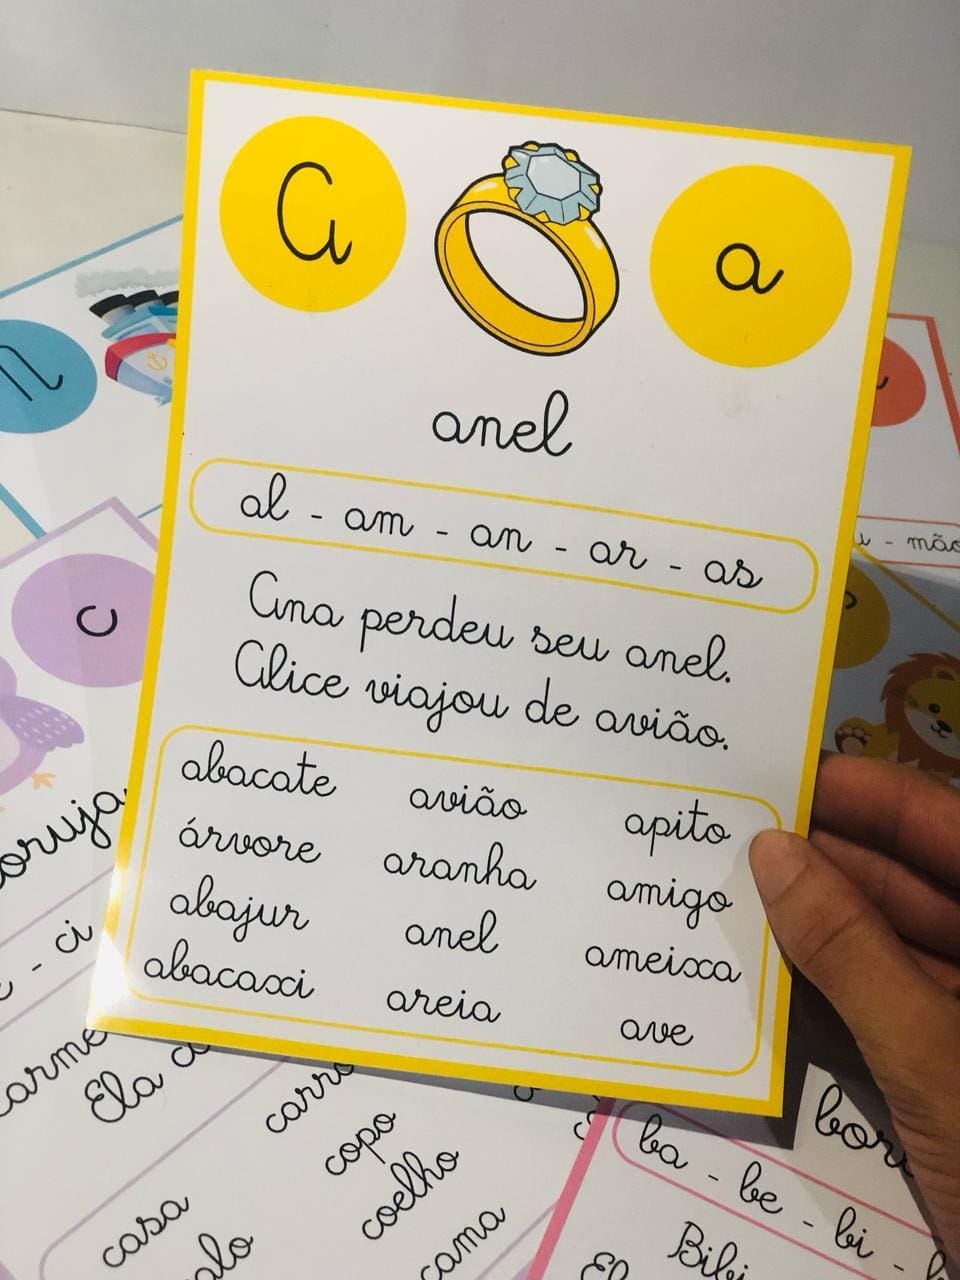 A a
anel
al - am - an - ar - as
Ana perdeu seu anel.
Alice viajou de avião.
abacate avião apito
árvore aranha amigo
abajur anel ameixa
abacaxi areia ave
n
c
- mão
- ci
Ela
copo
coelho
casa
cama
ba - be - bi -
Bibi